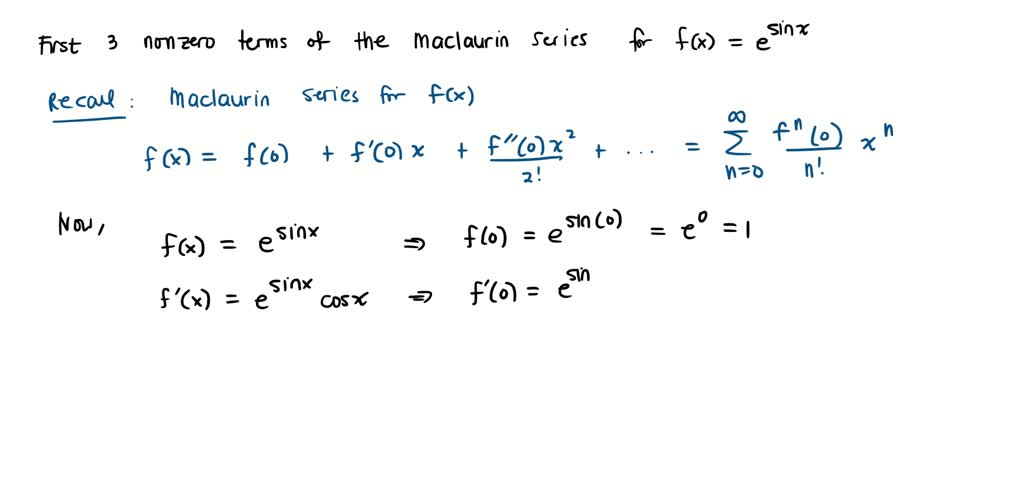 First 3 nonzero terms of the Maclaurin series for f(x) = e^sinx
Recall: Maclaurin series for f(x)
f(x) = f(0) + f'(0)x + f''(0)x²/2! + ... = ∑_{n=0}^{∞} fⁿ(0)/n! xⁿ
Now,
f(x) = e^sinx ⇒ f(0) = e^sin(0) = e⁰ = 1
f'(x) = e^sinx cosx ⇒ f'(0) = e^sin